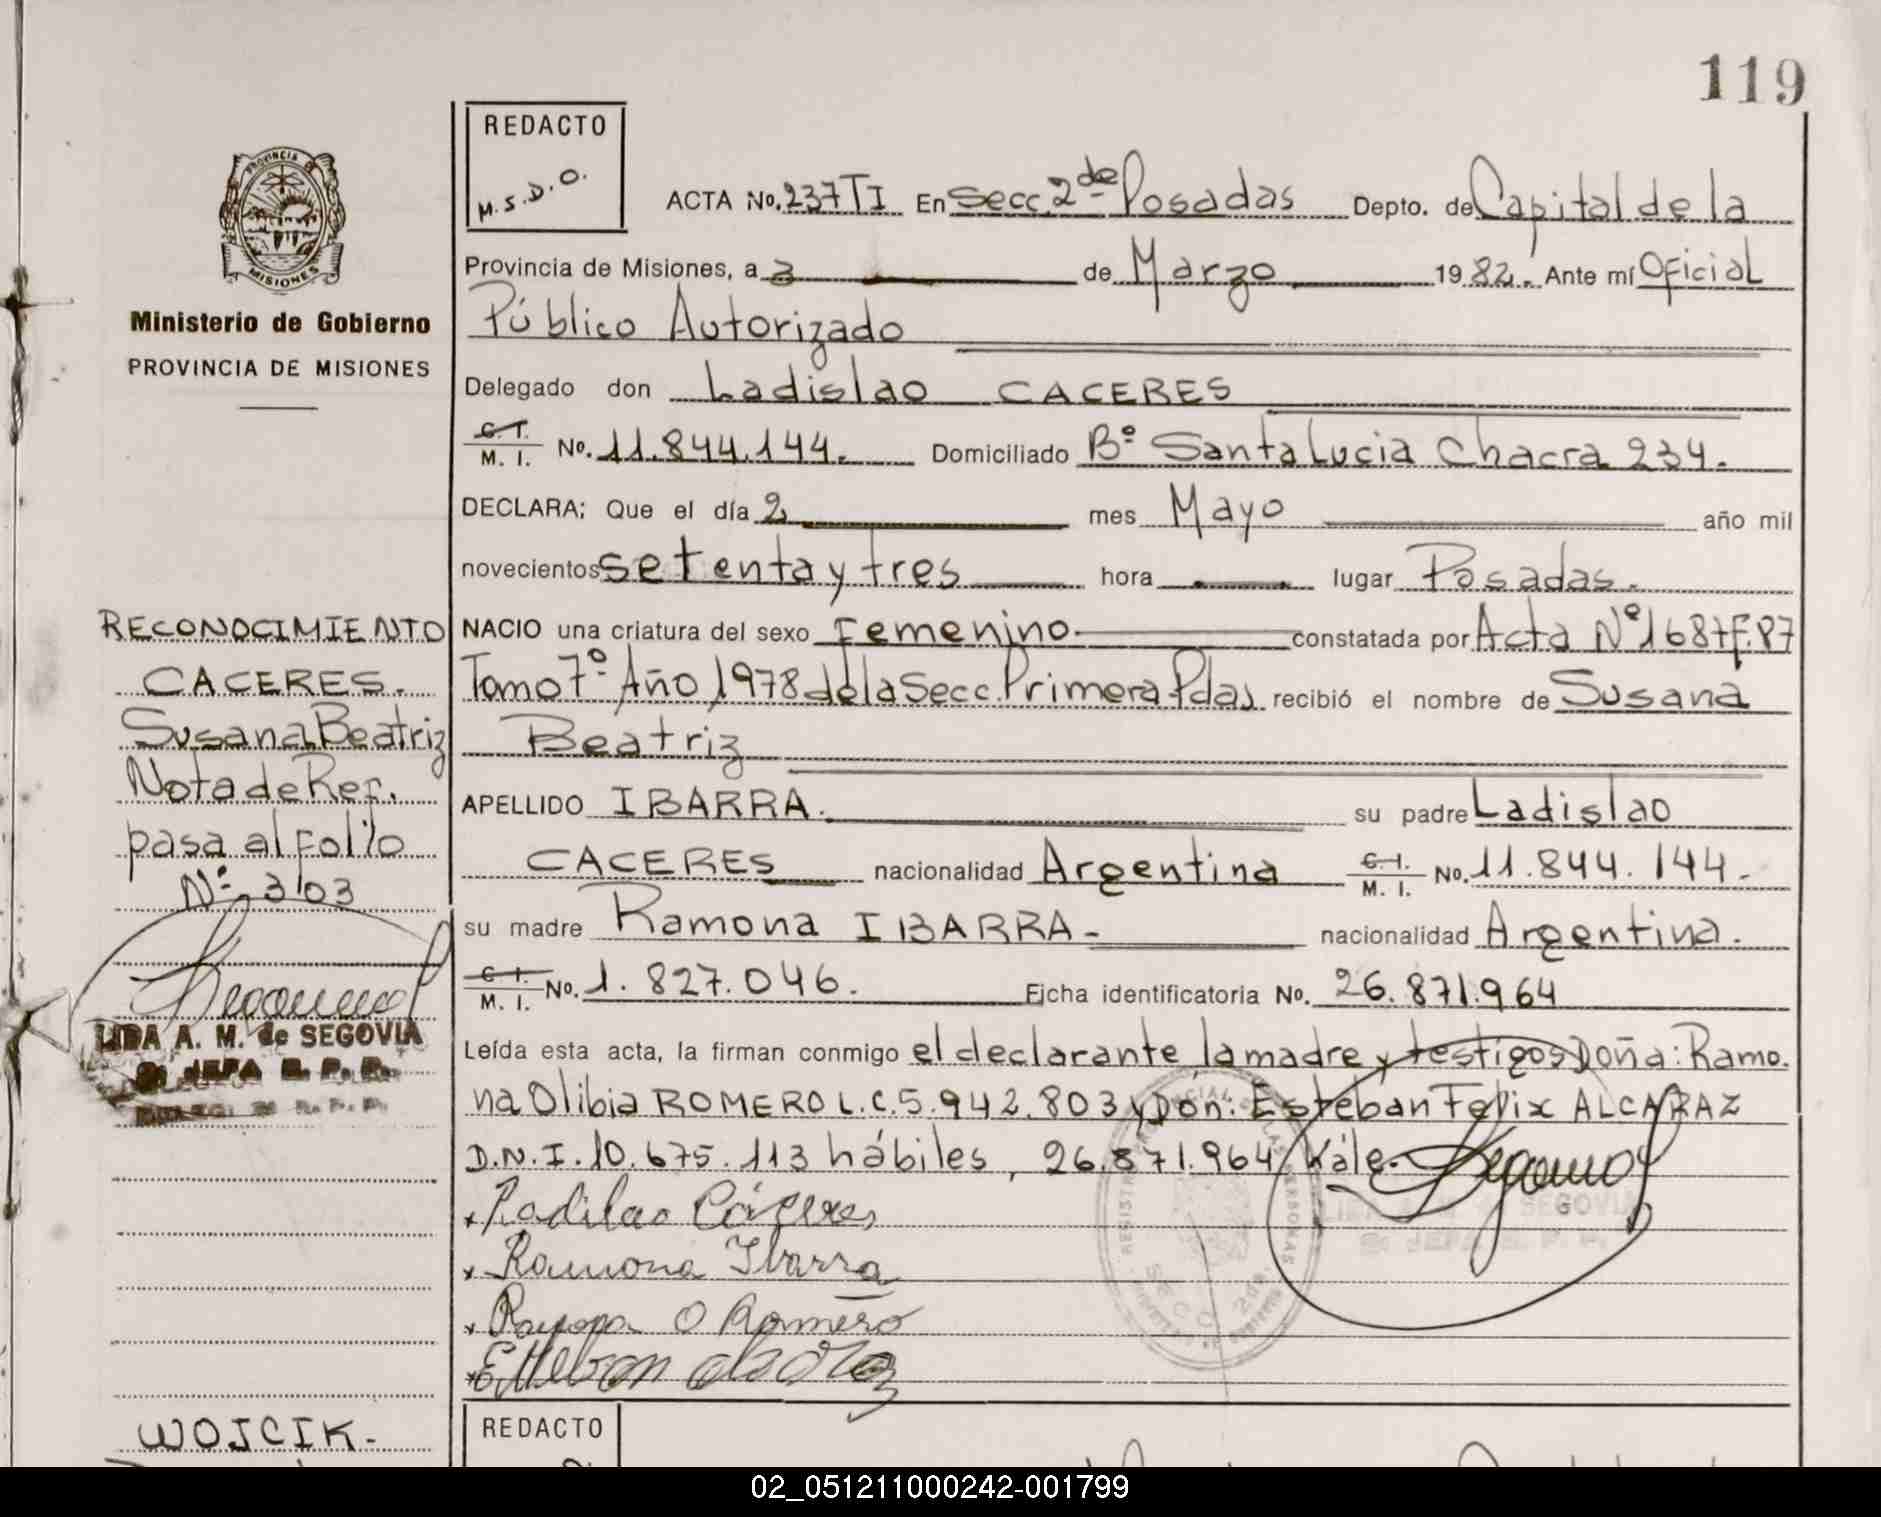 119
REDACTO
M.S.D.O.
PROVINCIA DE
MISIONES
Ministerio de Gobierno
PROVINCIA DE MISIONES
ACTA No. 237 TI En Secc. 2da de Posadas Depto. de Capital de la
Provincia de Misiones, a 3 de Marzo 1982. Ante mí Oficial
Público Autorizado
Delegado don Ladislao CACERES
C. I. M. I. No. 11.844.144. Domiciliado Bº Santa Lucia Chacra 234.
DECLARA: Que el día 2 mes Mayo año mil
novecientos setenta y tres hora lugar Posadas.
NACIO una criatura del sexo Femenino. constatada por Acta Nº 1687 F. 87
Tomo 7º Año 1978 de la Secc. Primera Pdas recibió el nombre de Susana
Beatriz
APELLIDO IBARRA. su padre Ladislao
CACERES nacionalidad Argentina C. I. M. I. No. 11.844.144-
su madre Ramona IBARRA- nacionalidad Argentina.
C. I. M. I. No. 1.827.046. Ficha identificatoria No. 26.871.964
Leída esta acta, la firman conmigo el declarante, la madre y testigos Doña: Ramo.
na Olibia ROMERO L.C. 5.942.803 y Don: Esteban Felix ALCARAZ
D.N.I. 10.675.113 hábiles, 26.871.964 Vale-
x Ladilao Cáceres
x Ramona Ibarra
x Ramona O Romero
x Esteban Alcaraz
SEGOVIA
RECONOCIMIENTO
CACERES.
Susana Beatriz
Nota de Ref.
pasa al folio
Nº 303
LIDA A. M. de SEGOVIA
WOJCIK-
REDACTO
02_051211000242-001799